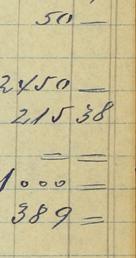 50 =
2450 =
215 38
= =
1000 =
389 =